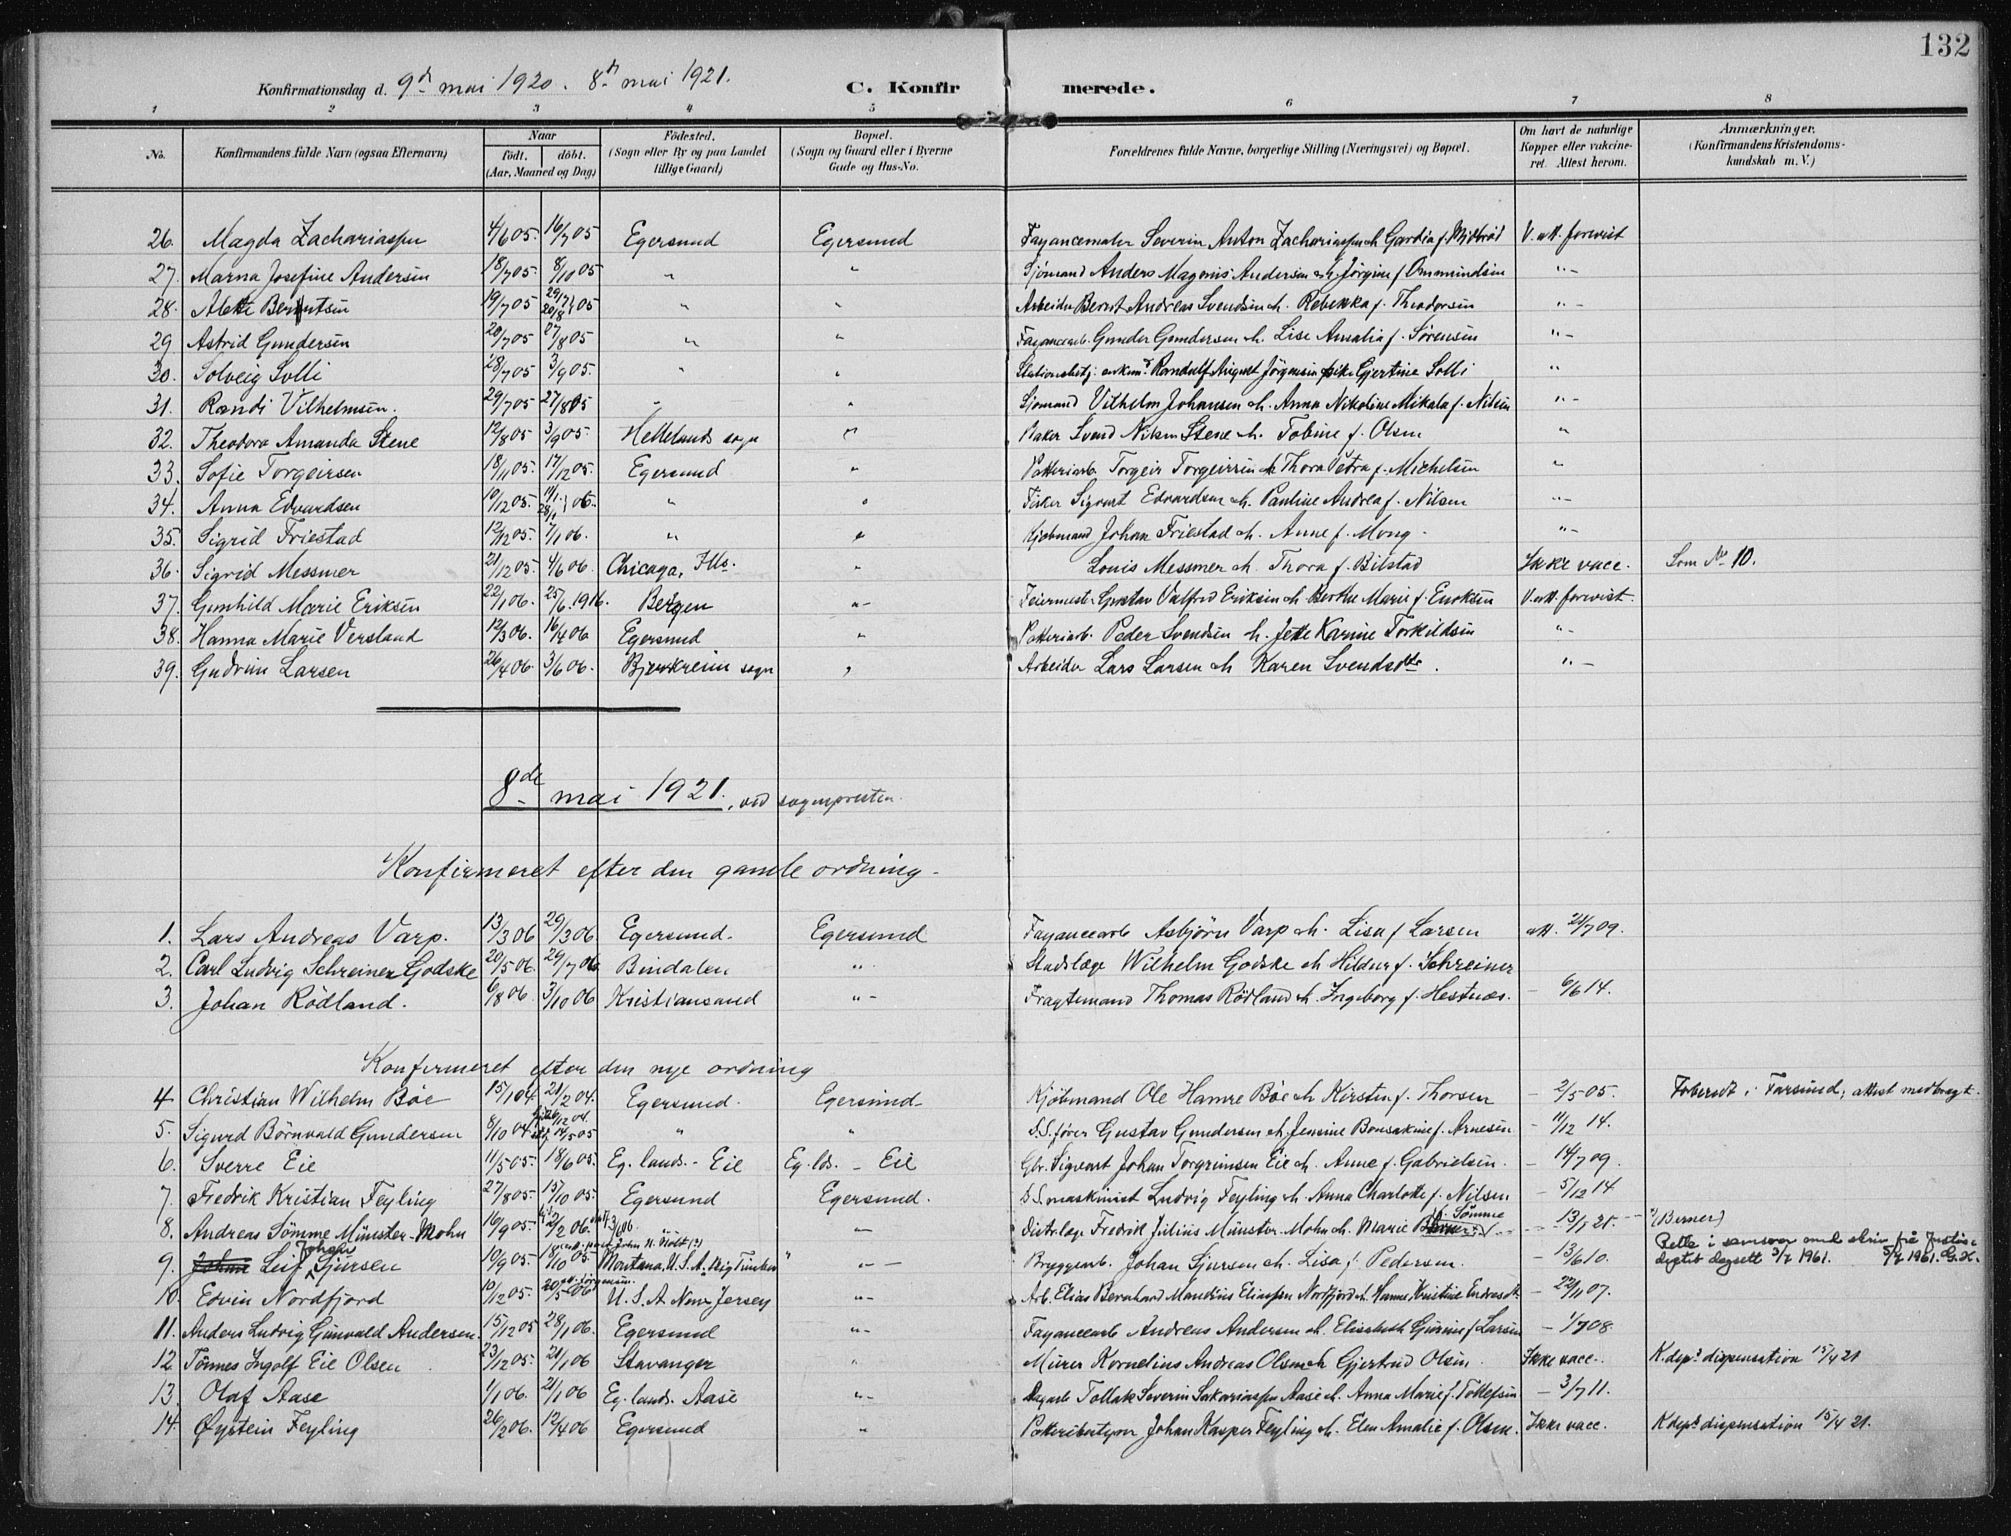 132
Konfirmationsdag d. 9de mai 1920. 8de mai 1921. C. Konfirmerede.
1 2 3 4 5 6 7 8
No. Konfirmandens fulde Navn (ogsaa Efternavn) Naar födt. döbt. (Aar, Maaned og Dag) Födested. (Sogn eller By og paa Landet tillige Gaard) Bopæl. (Sogn og Gaard eller i Byerne Gade og Hus-No. Forældrenes fulde Navne, borgerlige Stilling (Næringsvei) og Bopæl. Om havt de naturlige Kopper eller vakcineret. Attest herom. Anmærkninger. (Konfirmandens Kristendomskundskab m. V.)
26. Magda Zachariassen 4/6 05. 16/7 05 Egersund Egersund Fayancemaler Severin Anton Zachariassen & h. Gardia f. Midbrød V. att. forevist
27. Marna Josefine Andersen 18/7 05. 8/10 05 " " Sjömand Anders Magnus Andersen & h. Jörgine f. Ommundsen " -
28. Alette Berntsen 19/7 05 29/7 20/8 } 05 " " Arbeider Bernt Andreas Svendsen & h. Rebekka f. Theodorsen " -
29 Astrid Gundersen 20/7 05 27/8 05 " " Fayancearb. Gunder Gundersen & h. Lise Amalia f. Sörensen " -
30. Solveig Solli 28/7 05 3/9 05. " " Stationsbetj. Randulf August Jörgensen pike Gjertine Solli "
31. Randi Vilhelmsen. 29/7 05 27/8 05 " " Sjömand Vilhelm Johansen & h. Anna Nikoline Mikala f. Nilsen " -
32. Theodora Amanda Stene 12/8 05 3/9 05. Hetlelands sogn " Baker Svend Nilsen Stene & h. Tobine f. Olsen "
33. Sofie Torgeirsen 18/11 05. 17/12 05. Egersund " Potteriarb. Torgeir Torgeirsen & h. Thora Petra f. Michelsen "
34. Anna Edvardsen 10/12 05. 11/1 28/1 } 06. " " Fisker Sigvart Edvardsen & h. Pauline Andrea f. Nilsen " -
35. Sigrid Friestad 12/12 05. 7/1 06. " " Kjøbmand Johan Friestad & h. Anne f. Mong. " -
36. Sigrid Messmer 21/12 05. 4/6 06. Chicago, Ills. " Louis Messmer & h. Thora f. Bilstad Ikke vacc. Som No 10.
37. Gunhild Marie Eriksen 22/1 06. 25/6. 1916. Bergen " - Feiermester Gustav Valfred Eriksen & h. Berthe Marie f. Enoksen V. att. forevist.
38. Hanna Marie Versland 12/3 06. 16/4 06 Egersund " Potteriarb. Peder Svendsen & h. Jette Karine Torkildsen " -
39. Gudrun Larsen 26/4 06 3/6 06. Bjerkreim sogn " Arbeider Lars Larsen & h. Karen Svendsdtr. " -
8de mai 1921., ved sognepresten.
Konfirmeret efter den gamle ordning.
1. Lars Andreas Varp. 13/3 06 29/3 06. Egersund. Egersund Fayancearb Asbjörn Varp & h. Lisa f. Larsen att. 21/7 09.
2. Carl Ludvig Schreiner Godske 20/5 06. 29/7 06. Bindalen " Stadslæge Wilhelm Godske & h. Hildur f. Schreiner
3. Johan Rödland. 6/8 06. 3/10 06 Kristiansand " - Fragtemand Thomas Rödland & h. Ingeborg f. Hestnæs. - 6/6 14.
Konfirmeret efter den nye ordning
4 Christian Wilhelm Böe 15/1 04. 21/2 04. Egersund. Egersund Kjöbmand Ole Hamre Böe & h. Kirsten f. Thorsen - 2/5 05. Forberedt i Farsund; attest medbragt.
5. Sigurd Börnvald Gundersen 8/10 04. 26/12 04. 14/5 05 " " S.S. förer Gustav Gundersen & h. Jensine Bonsakine f. Arnesen - 11/12 14.
6. Sverre Eie 11/5 05. 18/6 05. Eg. lands. - Eie Eg. lds. - Eie Gbr. Sigvart Johan Torgrimsen Eie & h. Anne f. Gabrielsen. - 14/7 09.
7. Fredrik Kristian Feyling 27/8 05. 15/10 05. Egersund Egersund. S.S. maskinist Ludvig Feyling & h. Anna Charlotte f. Nilsen - 5/12 14
8. Andreas Sömme Münster-Mohn 16/9 05. 2/2 06. " " - Distr.læge Fredrik Julius Münster-Mohn & h. Marie f. Sömme - 13/1 21. (Berner)
9. Johan Leif Johan Sjursen 10/9 05. 18/10 05 Montana, U.S.A. " - Bryggearb. Johan Sjursen & h. Lisa f. Pedersen. - 13/6 10. Rette i samsvar med skriv frå Justisdeptet dagsett 3/7 1961. 5/7 1961. G.H.
10. Edvin Nordfjord 10/12 05. 20/5 06 U.S.A. New Jersey " - Arb. Elias Bernhard Mandius Eliassen Nordfjord & h. Hanne Kristine Endresdt. - 22/11 07.
11. Anders Ludvig Gunvald Andersen. 15/12 05 28/1 06. Egersund " - Fayancearb Andreas Andersen & h. Elisabeth Gurine f. Larsen - 1/7 08.
12. Tönnes Ingolf Eie Olsen 23/12 05. 21/1 06 Stavanger " Murer Kornelius Andreas Olsen & h. Gjertrud Olsen. Ikke vacc. K.dept dispensation 15/4 21
13. Olaf Aase 1/1 06. 21/1 06 Eg. lands. Aase " - Dagarb Tollak Severin Sakariassen Aase & h. Anna Marie f. Tollefsen - 3/7 11.
14. Øystein Feyling 26/2 06. 12/4 06 Egersund " Potteribestyrer Johan Kasper Feyling & h. Elen Amalie f. Olsen. Ikke vacc. K.dept dispensation 15/4 21.